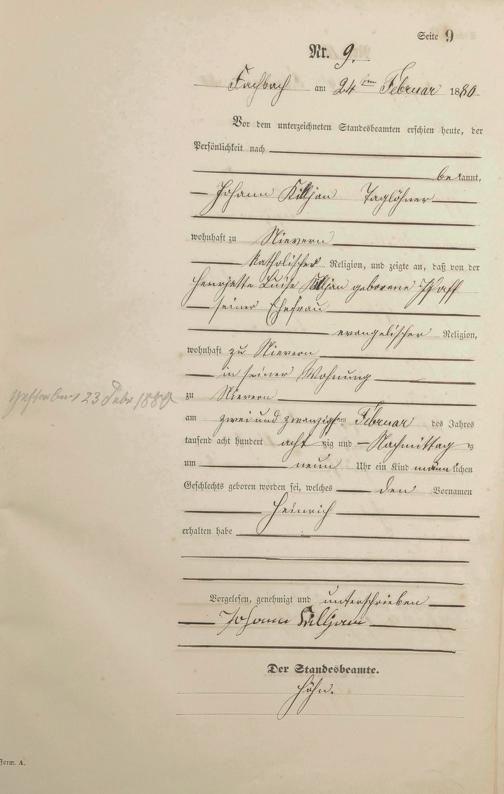 Seite 9
Nr. 9.
Fachbach am 24ten Februar 1880
Vor dem unterzeichneten Standesbeamten erschien heute, der
Persönlichkeit nach
bekannt,
Johann Killjan Taglöhner
wohnhaft zu Nievern
katholischer Religion, und zeigte an, daß von der
Henriette Luise Killjan geborene Pfaff
seiner Ehefrau
evangelischer Religion,
wohnhaft zu Nievern
in seiner Wohnung
zu Nievern
Gestorben 23 Febr. 1889
am zwei und zwanzigsten Februar des Jahres
tausend acht hundert achtzig und Nachmittag s
um neun Uhr ein Kind männlichen
Geschlechts geboren worden sei, welches den Vornamen
Heinrich
erhalten habe
Vorgelesen, genehmigt und unterschrieben
Johann Killjan
Der Standesbeamte.
Höhn.
Form. A.